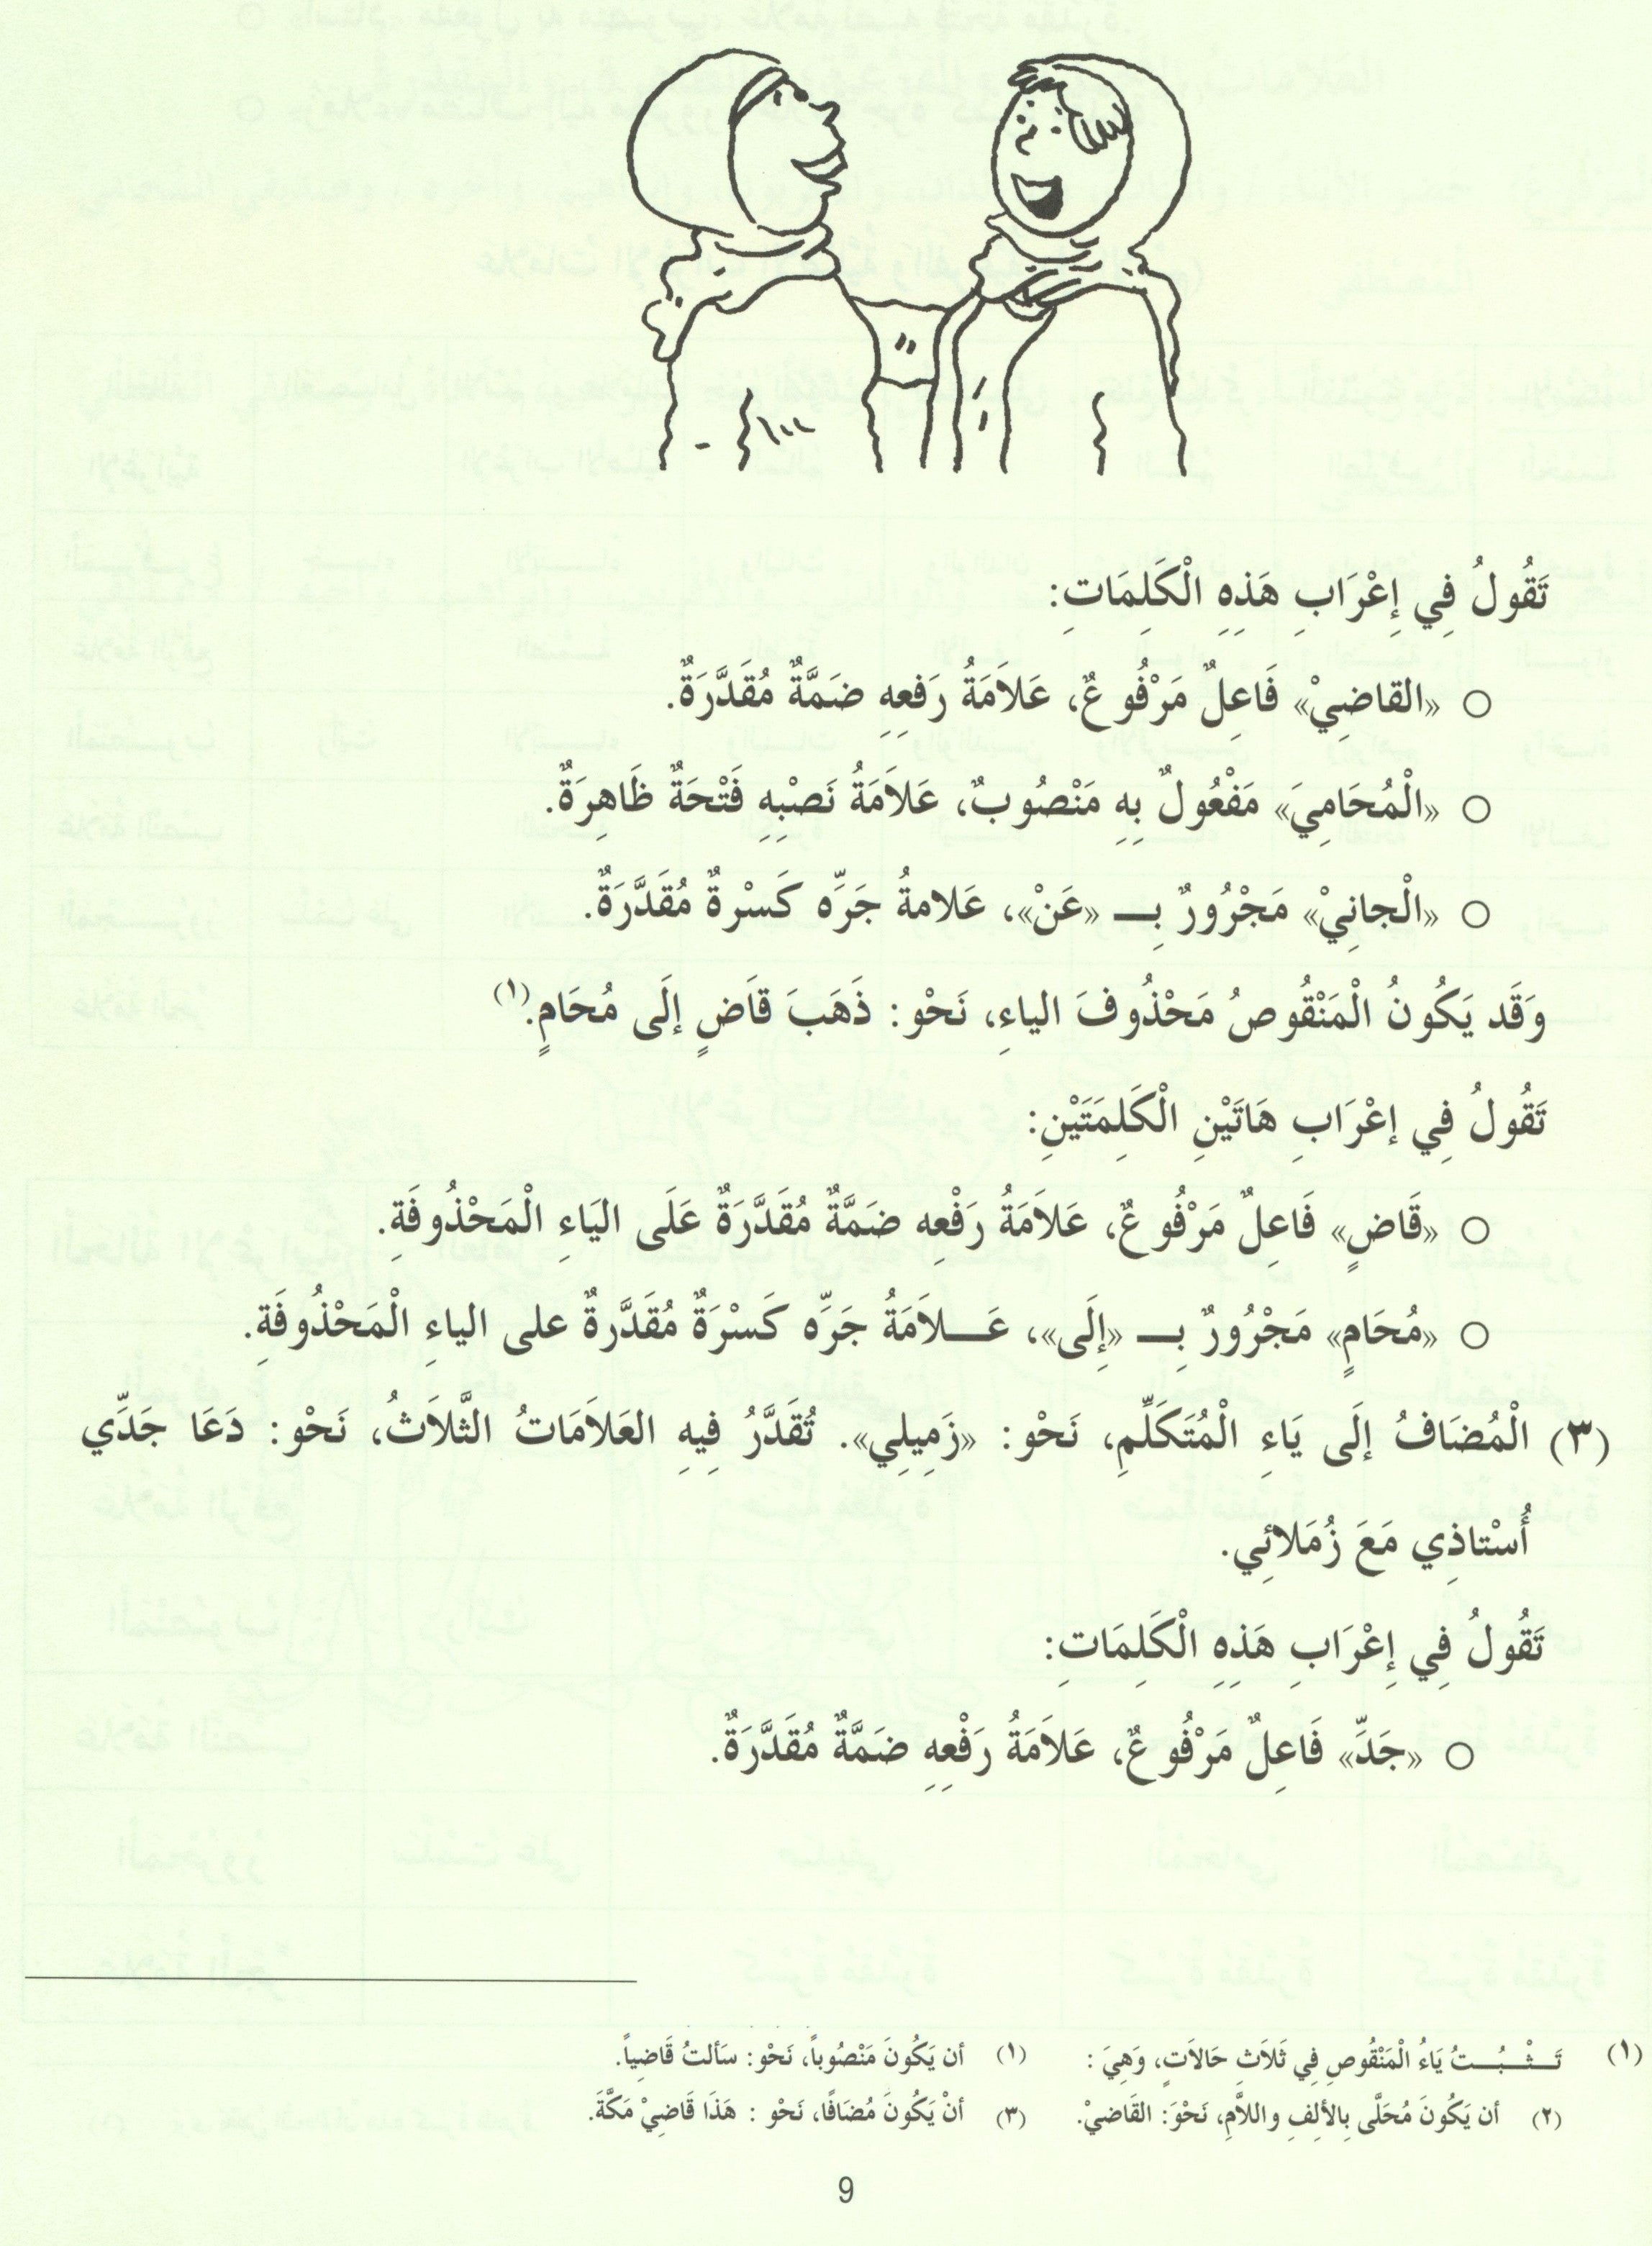 تَقُولُ فِي إِعْرَابِ هَذِهِ الْكَلِمَاتِ:
○ «القاضِيْ» فَاعِلٌ مَرْفُوعٌ، عَلاَمَةُ رَفعِهِ ضَمَّةٌ مُقَدَّرَةٌ.
○ «الْمُحَامِيَ» مَفْعُولٌ بِهِ مَنْصُوبٌ، عَلاَمَةُ نَصْبِهِ فَتْحَةٌ ظَاهِرَةٌ.
○ «الْجانِيْ» مَجْرُورٌ بِــ «عَنْ»، عَلامةُ جَرِّه كَسْرةٌ مُقَدَّرَةٌ.
وَقَد يَكُونُ الْمَنْقُوصُ مَحْذُوفَ الياءِ، نَحْو: ذَهَبَ قاَضٍ إلَى مُحَامٍ.(١)
تَقُولُ فِي إعْرَابِ هَاتَيْنِ الْكَلِمَتَيْنِ:
○ «قَاضٍ» فَاعِلٌ مَرْفُوعٌ، عَلاَمَةُ رَفْعِه ضَمَّةٌ مُقَدَّرَةٌ عَلَى اليَاءِ الْمَحْذُوفَةِ.
○ «مُحَامٍ» مَجْرُورٌ بِــ «إِلَى»، عَــلاَمَةُ جَرِّه كَسْرَةٌ مُقَدَّرةٌ على الياءِ الْمَحْذُوفَةِ.
(٣) الْمُضَافُ إلَى يَاءِ الْمُتَكَلِّمِ، نَحْو: «زَمِيلِي». تُقَدَّرُ فِيهِ العَلاَمَاتُ الثَّلاَثُ، نَحْو: دَعَا جَدِّي
أُسْتاذِي مَعَ زُمَلائِي.
تَقُولُ فِي إِعْرَابِ هَذِهِ الْكَلِمَاتِ:
○ «جَدِّ» فَاعِلٌ مَرْفُوعٌ، عَلاَمَةُ رَفْعِهِ ضَمَّةٌ مُقَدَّرَةٌ.
(١) تَــثْــبُــتُ يَاءُ الْمَنْقُوصِ فِي ثَلاَثِ حَالاَتٍ، وَهِيَ : (١) أن يَكُونَ مَنْصُوباً، نَحْو: سَألتُ قَاضِياً.
(٢) أن يَكُونَ مُحَلَّى بِالألِفِ واللاَّمِ، نَحْوَ: القَاضيْ. (٣) أنْ يَكُونَ مُضَافًا، نَحْو : هَذَا قَاضِيْ مَكَّةَ.
9